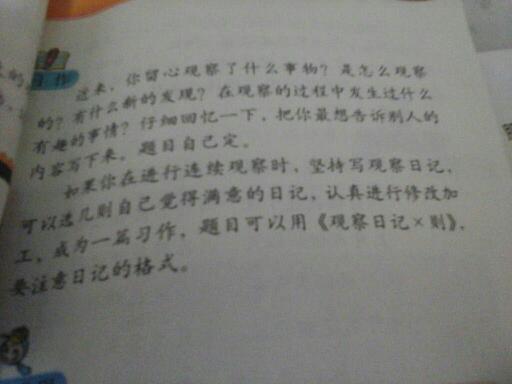 习作
近来，你留心观察了什么事物？是怎么观察
的？有什么新的发现？在观察的过程中发生过什么
有趣的事情？仔细回忆一下，把你最想告诉别人的
内容写下来。题目自己定。
如果你在进行连续观察时，坚持写观察日记，
可以选几则自己觉得满意的日记，认真进行修改加
工，成为一篇习作，题目可以用《观察日记×则》，
要注意日记的格式。